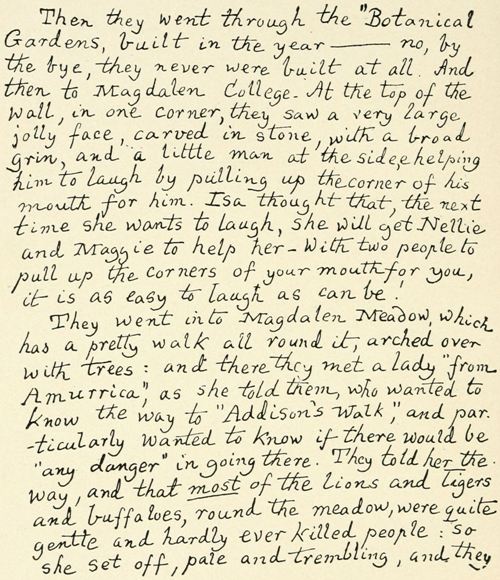 Then they went through the "Botanical
Gardens, built in the year —— no, by
the bye, they never were built at all. And
then to Magdalen College. At the top of the
wall, in one corner, they saw a very large
jolly face, carved in stone, with a broad
grin, and a little man at the side, helping
him to laugh by pulling up the corner of his
mouth for him. Isa thought that, the next
time she wants to laugh, she will get Nellie
and Maggie to help her - With two people to
pull up the corners of your mouth for you,
it is as easy to laugh as can be!
They went into Magdalen Meadow, which
has a pretty walk all round it, arched over
with trees: and there they met a lady "from
Amurrica," as she told them, who wanted to
know the way to "Addison's Walk," and par-
-ticularly wanted to know if there would be
"any danger" in going there. They told her the
way, and that most of the lions and tigers
and buffaloes, round the meadow, were quite
gentle and hardly ever killed people: so
she set off, pale and trembling, and they